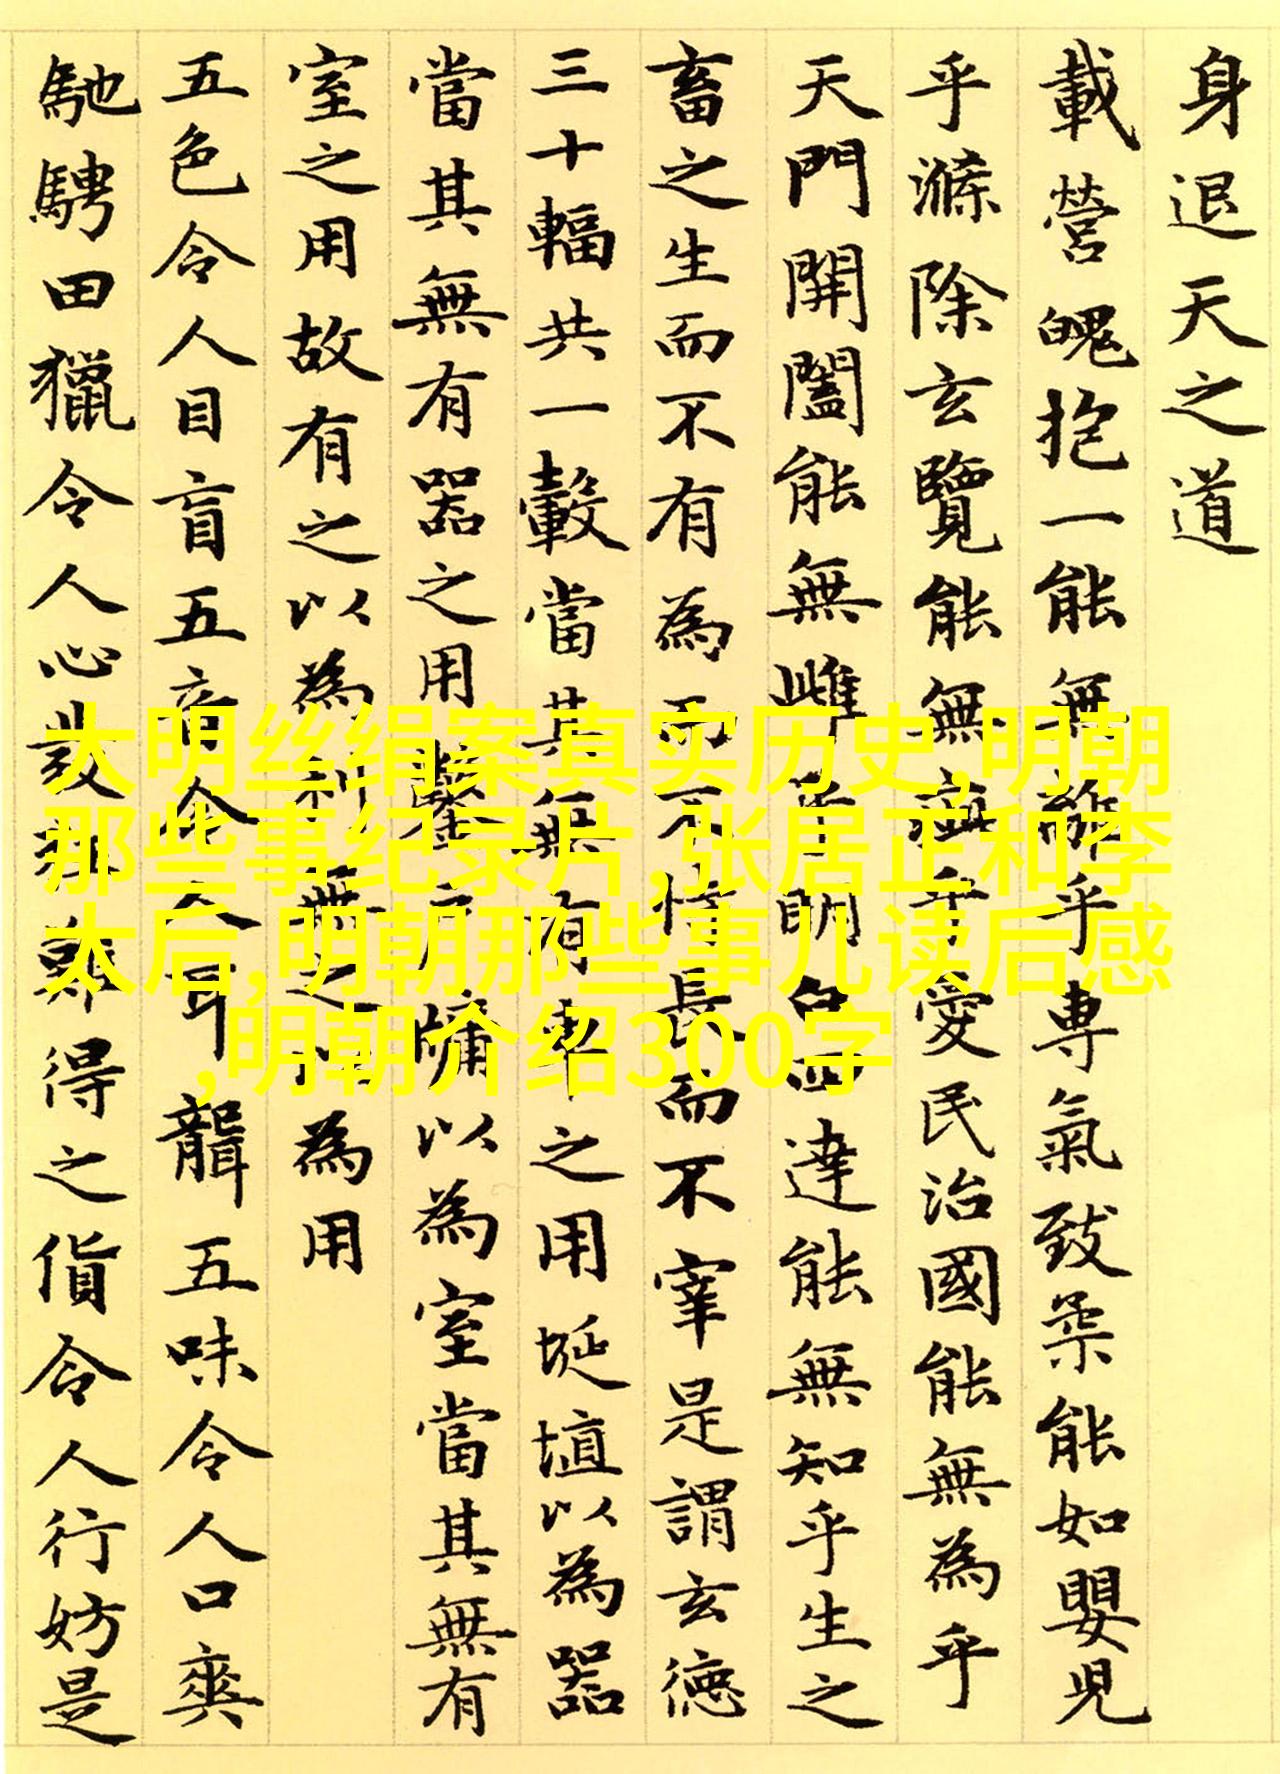 身退天之道
載營魄抱一能無離乎專氣致柔能如嬰児
乎滌除玄覽能無疵乎愛民治國能無為乎
天門開闔能無雌乎明白四達能無知乎生之
畜之生而不有為而不恃長而不宰是謂玄德
三十輻共一轂當其無有車之用埏埴以為器
當其無有器之用鑿戶牖以為室當其無有
室之用故有之以為利無之以為用
五色令人目盲五音令人耳聾五味令人口爽
馳騁田獵令人心發狂難得之貨令人行妨是
大明丝绢案真实历史,明朝
那些事纪录片,张居正和李
太后,明朝那些事儿读后感
,明朝介绍300字